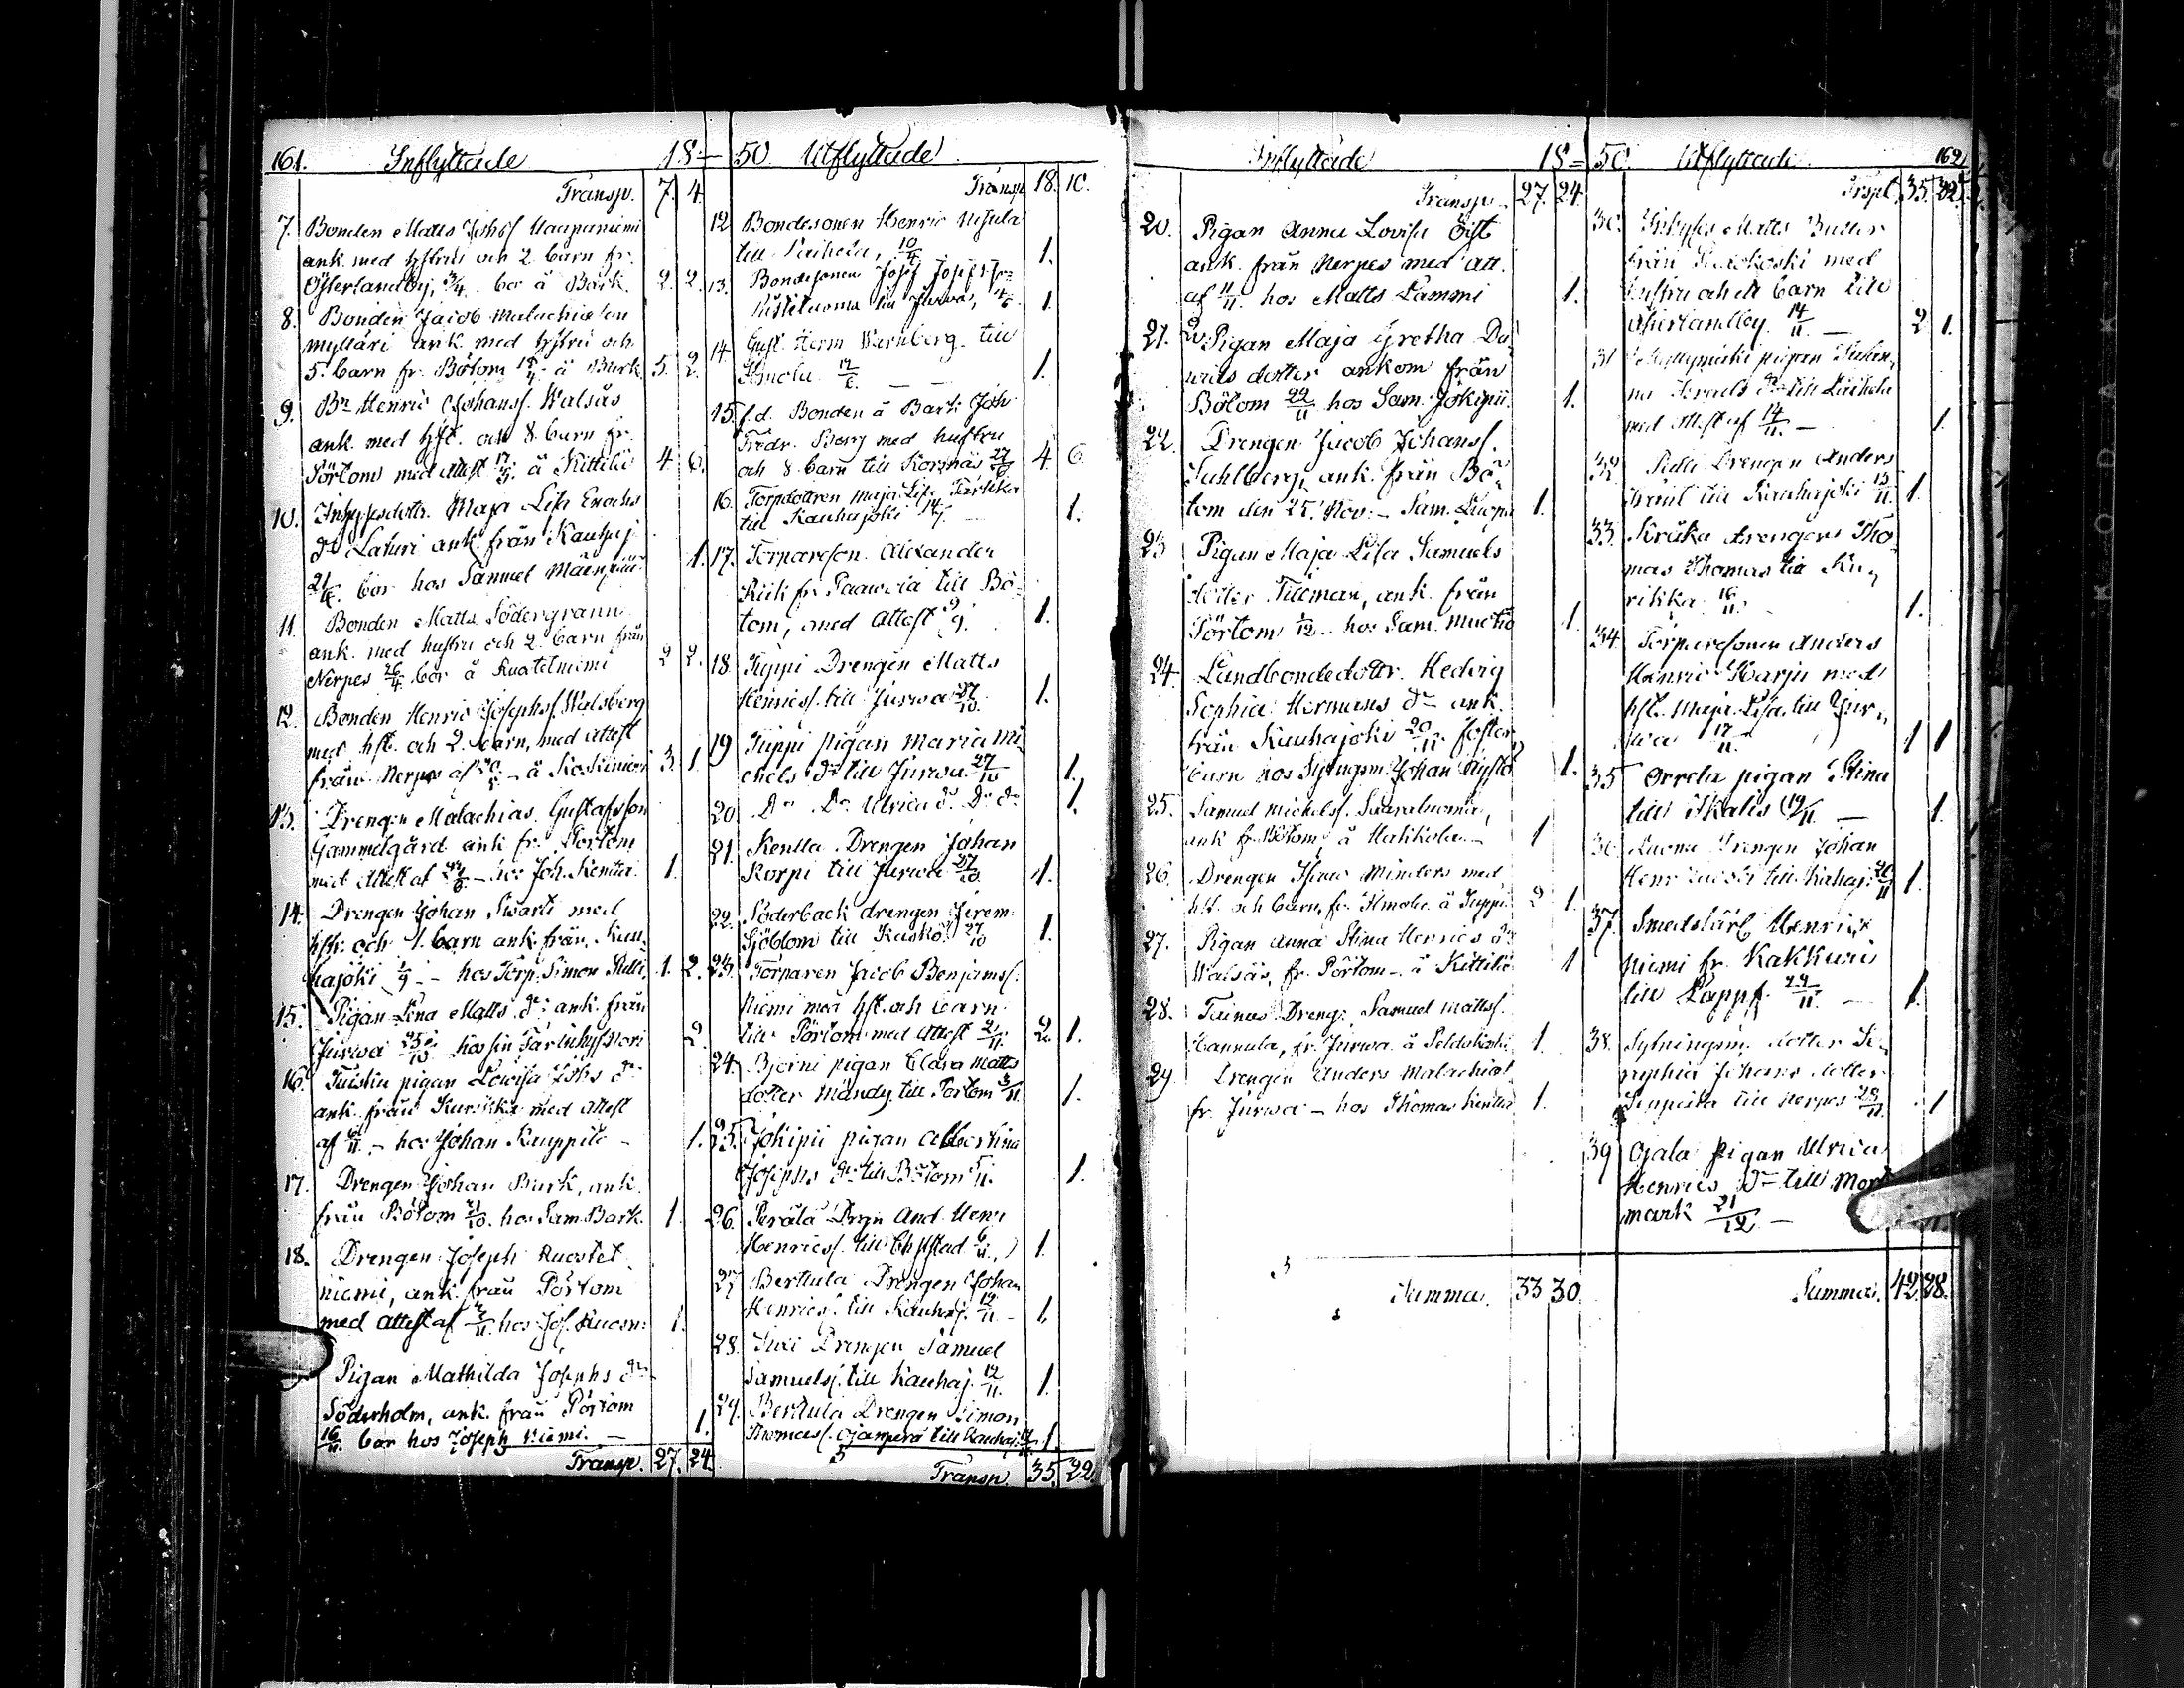 161. Inflyttade 18-
Transp. 7. 4.
7. Bonden Matts Johsf Haapaniemi
ank. med hstru och 2 barn fr.
Österlandby, 3/4. bor å Bärk. 2. 2.
8. Bonden Jacob Malachiason
mylläri ank. med hstru och
5. barn fr. Bötom å Burk 5. 2.
9. Bn Henric Johanss. Walsås
ank. med hst. och 8 barn fr.
Pörtom med attest å Kittilä 4. 6.
10. Inhysesdottr. Maja Lisa Erachs
dr Laturi ank. från Kauhaj.
bor hos Samuel Mäenpää 1.
11. Bonden Matts Södergrann
ank. med hustru och 2 barn från
Nerpes 26/4 bor å Luotelniemi 2 2.
12. Bonden Henric Josephs. Walsberg
med hst. och 2. barn, med attest
från Nerpes af å Koskiniemi 3. 1
13. Drengen Malachias Gustafsson
Gammelgård ank. fr. Pörtom
med Attest af hos Joh. Kentta. 1.
14. Drengen Johan Swarti med
hstr. och 1. barn ank. från Kau,
hajoki 1/9 - hos Torp. Simon 1. 2.
15. Pigan Lena Matts dr ank. från
Jurwa 25/10 hos sin far 2.
16. Tuisku pigan Lowisa Johs dr
ank. från Kurikka med attest
af 6/11 - hos Johan Kauppila - 1.
17. Drengen Johan Burk, ank.
från Bötom 21/10. hos Sam. Bark. 1.
18. Drengen Joseph Luostel
niemi, ank. från Pörtom
med attest af hos Jos. Luosn: 1.
Pigan Mathilda Josephs dr
Söderholm, ank. från Pörtom
16/11. bor hos Joseph Niemi. - 1.
Transp. 27. 24.
50. Utflyttade
Transp 18. 10.
12 Bondesonen Henric
till Laihela, 10/4 1.
13. Bondesonen Josef Josefs
till Jurwa, 1.
14. Gust. Herm Warnberg. till
Ilmola 12/6. 1.
15. f.d. Bonden å Bark Joh
Fredr. Berg med hustru
och 8 barn till Korsnäs 4. 6
16. Torpdottren Maja Lisa
till Kauhajoki 1.
17. Torpareson Alexander
Kiik fr. Paawola till Bö-
tom, med Attest 9/9. 1.
18. Tuppi Drengen Matts
Henricss. till Jurwa 27/10. 1.
19 Tuppi pigan Maria Mi
chels dr till Jurwa 27/10 1.
20 Do Do Ulrica do Do do 1.
21. Kentta Drengen Johan
Korpi till Jurwa 27/10 1.
22. Söderback drengen Jerem.
Sjöblom till Kaskö 27/10 1.
23. Torparen Jacob Benjamss.
Niemi med hst. och barn
till Pörtom med Attest 2/11. 2. 1.
24. Björni pigan Clara Matts
dotter Mändy till Pörtom 3/11. 1.
25. Jokipii pigan Albertina
Josephs dr till Bötom 5/11. 1.
26. Perälä Drgn And. Henr
Henricss. till Chrstad 6/11. 1.
27 Berttula Drengen Johan
Henrics. till Kauhaj. 12/11 - 1.
28. Susi Drengen Samuel
Samuelss. till Kauhaj. 12/11. 1.
29. Berttula Drengen Simon
Thomass. Ojanperä till Kauhaj. 1.
Transp. 35. 22.
Inflyttade 18=
Transp. 27. 24.
20. Pigan Anna Lovisa Öist
ank. från Nerpes med att.
af hos Matts Lammi 1.
21. Pigan Maja Gretha Da,
niels dotter ankom från
Bötom 22/11 hos Sam. Jokipii. 1.
22. Drengen Jacob Johanss.
Suhlberg, ank. från Bö,
tom den 25. Nov. - Sam. Luopa 1.
23 Pigan Maja Lisa Samuels
dotter Tillman, ank. från
Pörtom hos Sam. 1.
24. Landbondedottr. Hedvig
Sophia Hermans dr ank.
från Kauhajoki 20/11. foster
barn hos Sytngsm. Johan 1.
25. Samuel Mickelss. Saaraluoma,
ank fr. Bötom, å Hakkola. - 1
26. Drengen Isaac Minders med
hst. och barn, fr. Ilmola. å Tuppi 2 1.
27. Pigan Anna Stina Henrics dr
Walsås, fr. Pörtom - å Kittilä 1
28. Drengen Samuel Mattss.
Hannula, fr. Jurwa å 1.
29. Drengen Anders Malachiass
fr. Jurwa - hos Thomas Kentta 1.
Summa. 33 30
50. Utflyttade. 162
Trspt. 35. 22.
30. Inhyses Matts
från med
hustru och ett barn till
Österlandby 14/11. - 2 1.
31 pigan Johan,
na Israels dr till Laihela
med Attest af 14/11. - 1.
32 Drengen Anders
till Kauhajoki 15/11. 1.
33. Kråka drengen Tho,
mas Thomas till Ku,
rikka 16/11. 1.
34. Torparesonen Anders
Henric Harju med
hst. Maja Lisa till Jur,
wa 17/11. 1 1
35 Orrela pigan Stina
till Ikalis 19/11 - 1.
36 Luoma Drengen Johan
Henr. till Kauhaj. 1.
37. Smedslärl Henrik
Niemi fr. Kakkuri
till Lappf. - 1.
38. Sytningsm. dotter Se,
raphia Johans dotter
till Nerpes 1
39 Ojala pigan Ulrica
Henrics dr till
mark 21/12 -
Summa. 42. 28.
KODAK SAFE